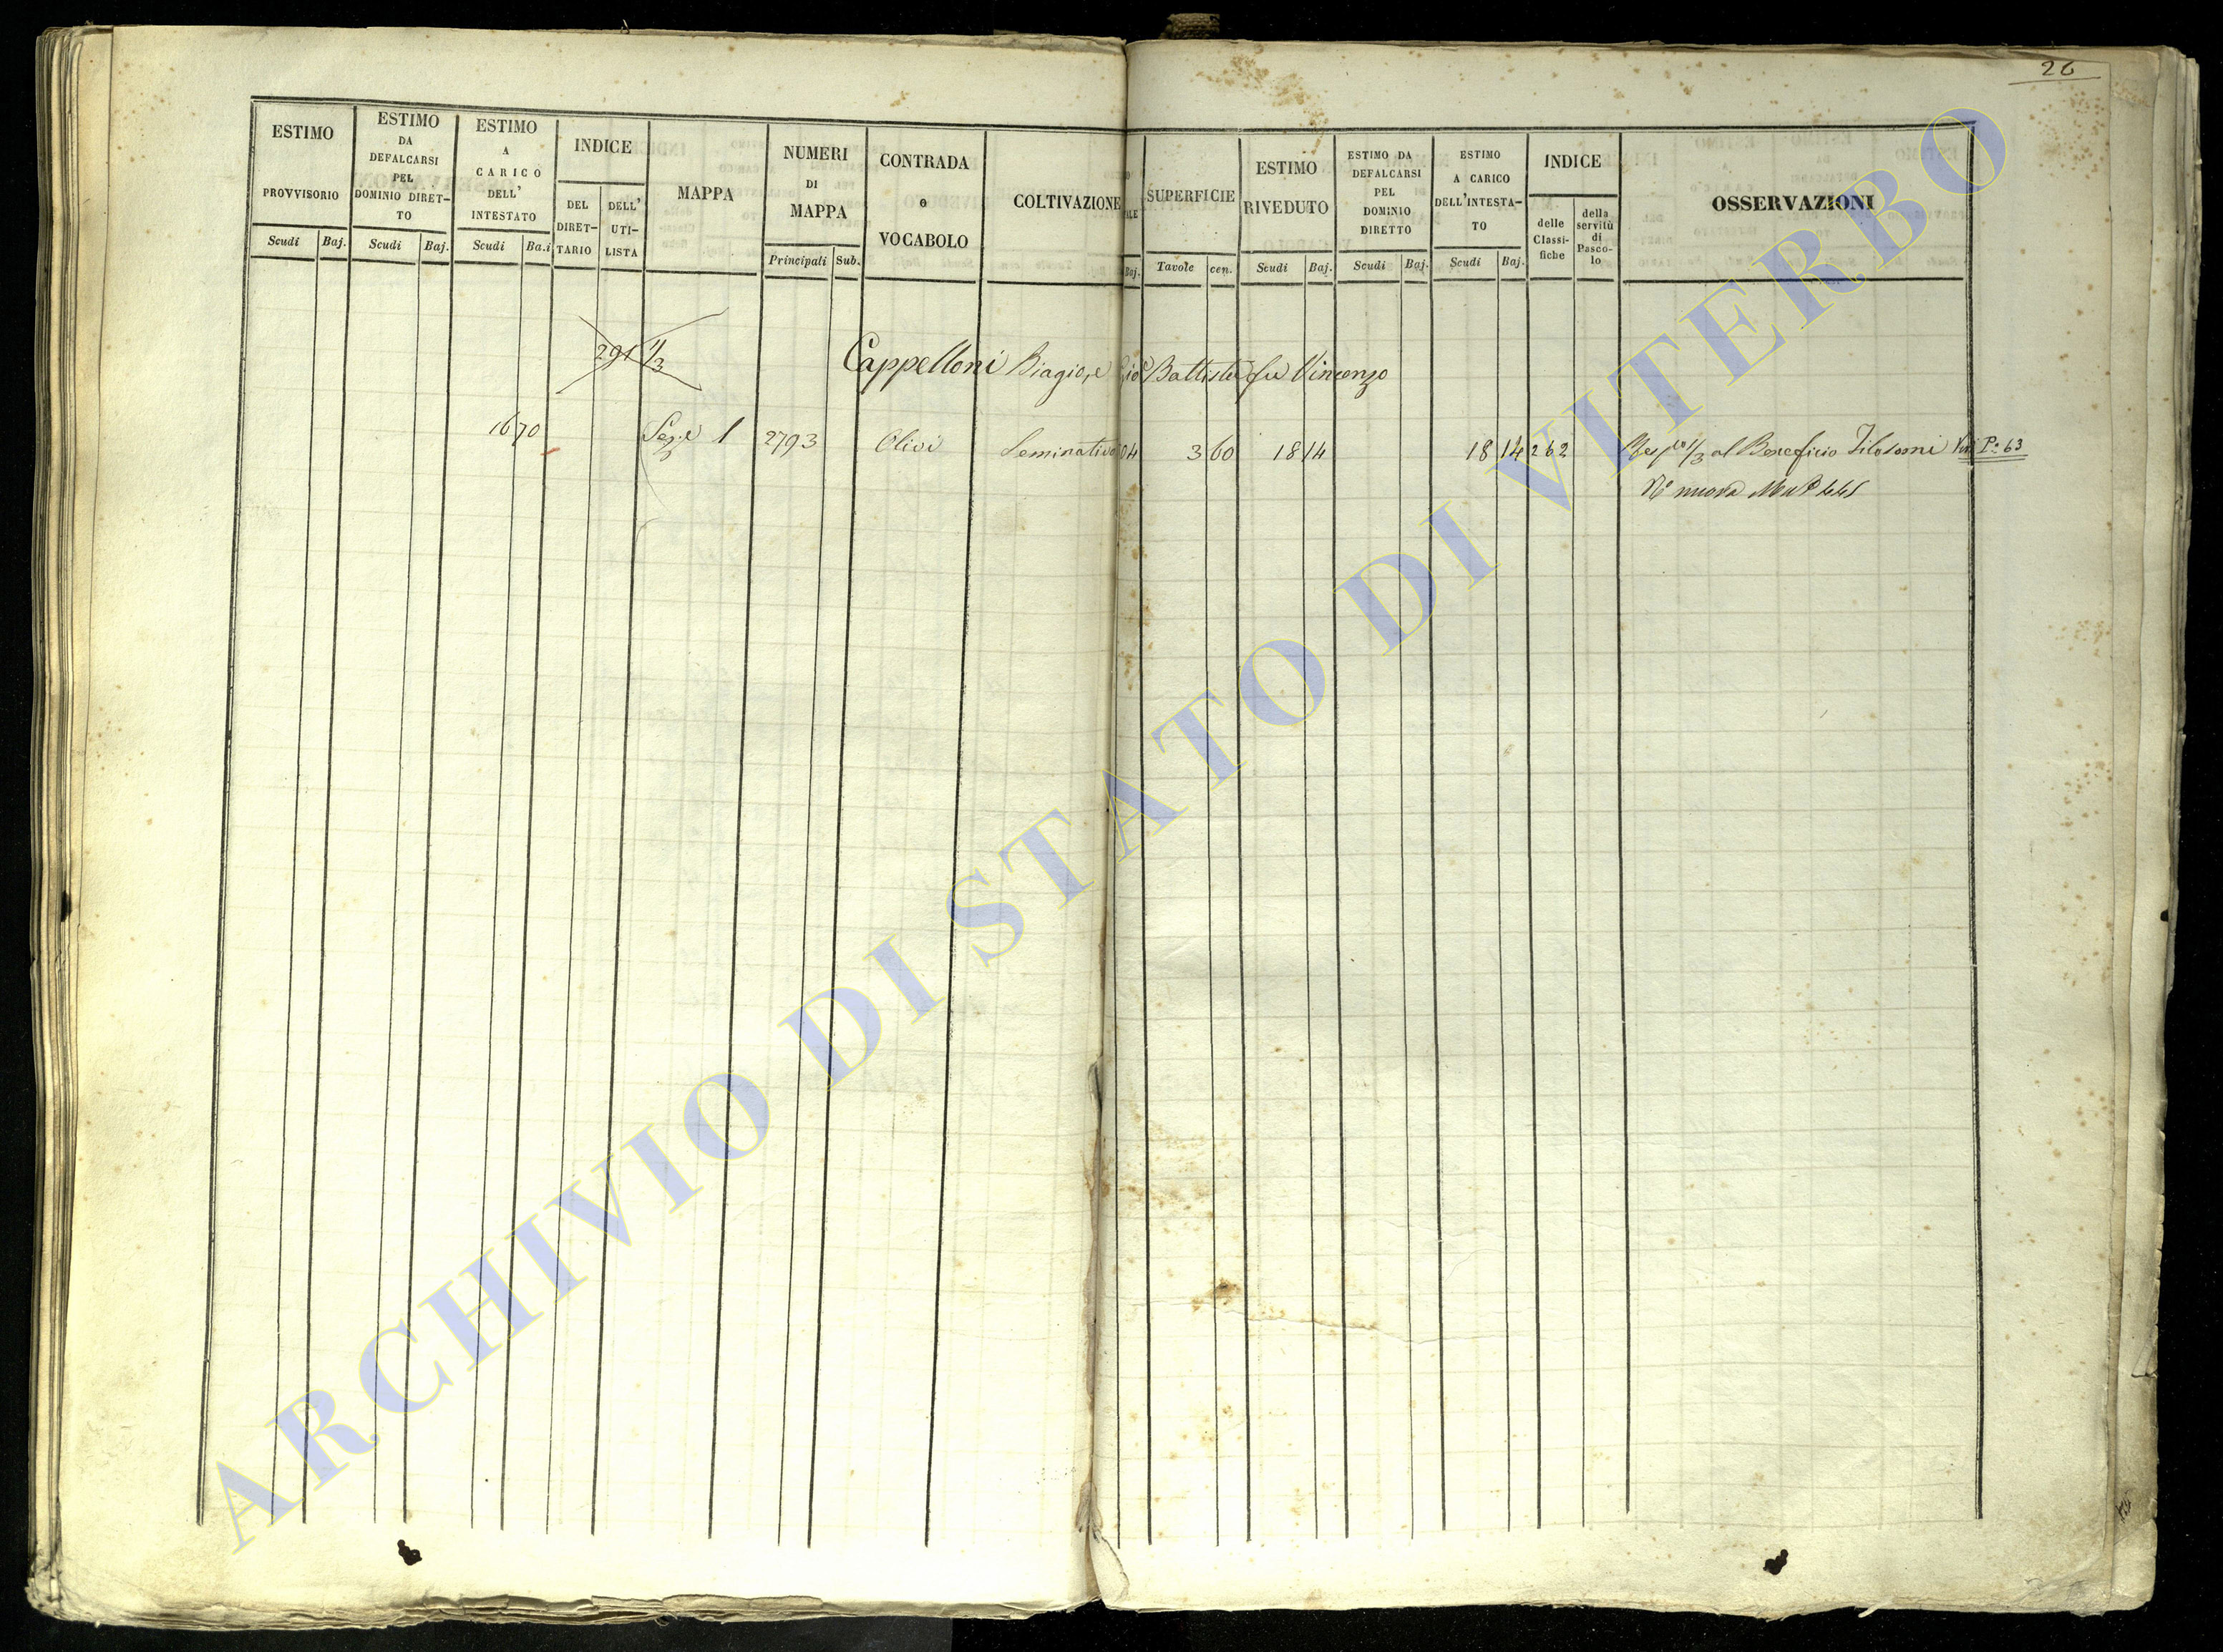 26
ESTIMO PROVVISORIO
Scudi Baj.
ESTIMO DA DEFALCARSI PEL DOMINIO DIRET- TO
Scudi Baj.
ESTIMO A CARICO DELL' INTESTATO
Scudi Ba.i
INDICE
DEL DIRET- TARIO
DELL' UTI- LISTA
MAPPA
NUMERI DI MAPPA
Principali Sub.
CONTRADA o VOCABOLO
COLTIVAZIONE
ALE
Baj.
SUPERFICIE
Tavole cen.
ESTIMO RIVEDUTO
Scudi Baj.
ESTIMO DA DEFALCARSI PEL DOMINIO DIRETTO
Scudi Baj.
ESTIMO A CARICO DELL'INTESTA- TO
Scudi Baj.
INDICE
delle Classi- fiche
della servitù di Pasco- lo
OSSERVAZIONI
291 1/3
Cappelloni Biagio, e Gio Battista fu Vincenzo
16 70 Sez.e 1 2793 Olivi Seminativo 04 3 60 18 14 18 14 262 1/3 al Beneficio Filosomi P. 63
nuova
ARCHIVIO DI STATO DI VITERBO